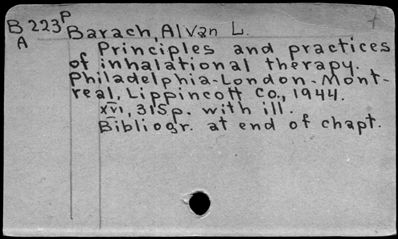 B 223 P Barach, Alvan L.
A Principles and practices
of inhalational therapy.
Philadelphia-London-Mont-
real, Lippincott Co., 1944.
xvi, 315p. with ill.
Bibliogr. at end of chapt.